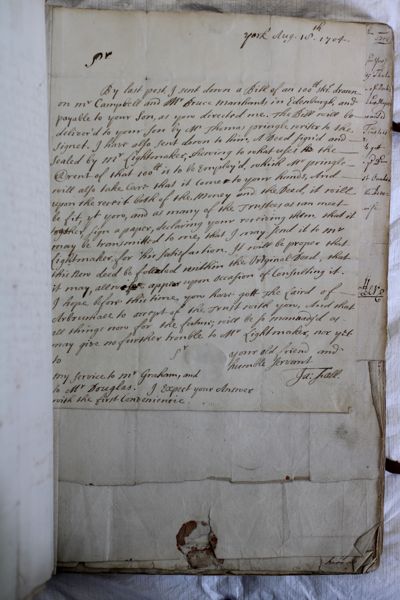 York Aug. 18th 1704.
Sr.
By last post J sent down a Bill of an 100d sterl. drawn
on mr Campbell and Mr Bruce marchants in Edenburgh, and
payable to your Son, as you directed me. The Bill will be
deliver'd to your Son by Mr Thomas pringle writer to the
signet. J have also sent down to him, A Deed sign'd and
sealed by mr Lightmaker, shewing to what uses the
@rent of that 100d is to be Employ'd, which Mr pringle
will also take Care that it come to your hands. And
upon the receit both of the Money and the Deed, it will
be fit, yt you, and as many of the Trustees as can meet
together sign a paper, declaring your receiving them that it
may be transmitted to me, that J may send it to mr
Lightmaker for his Satisfaction. Jt will be proper that
this New deed be folded within the Original Deed, that
it may, appear upon occasion of Consulting it.
J hope before this time, you have gott the Laird of
to accept of the Trust with you, And that
all things now for the future, will be so manag'd as
may give no further trouble to Mr Lightmaker, nor yet
to
Sr.
your old friend and
humble Servant
Ja: Fall.
my Service to mr Graham, and
to Mr Douglas. J Expect your Answer
with the first Conveniencie.